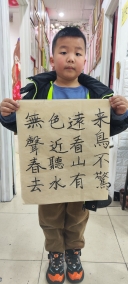 来鳥不驚
遠看山有
色近聽水
無聲春去